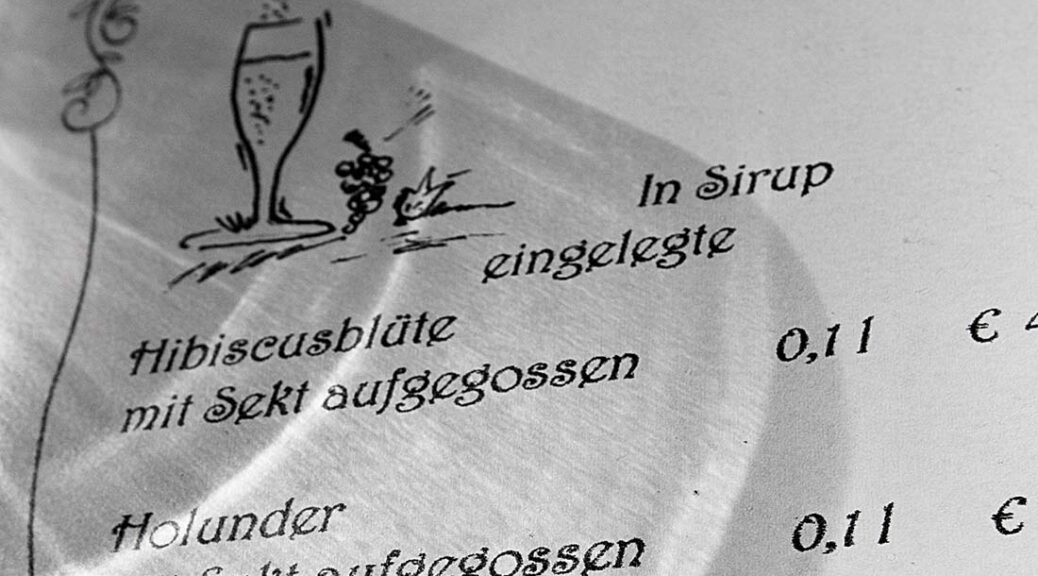 In Sirup
eingelegte
Hibiscusblüte
mit Sekt aufgegossen 0,1 l €
Holunder 0,1 l €
Sekt aufgegossen